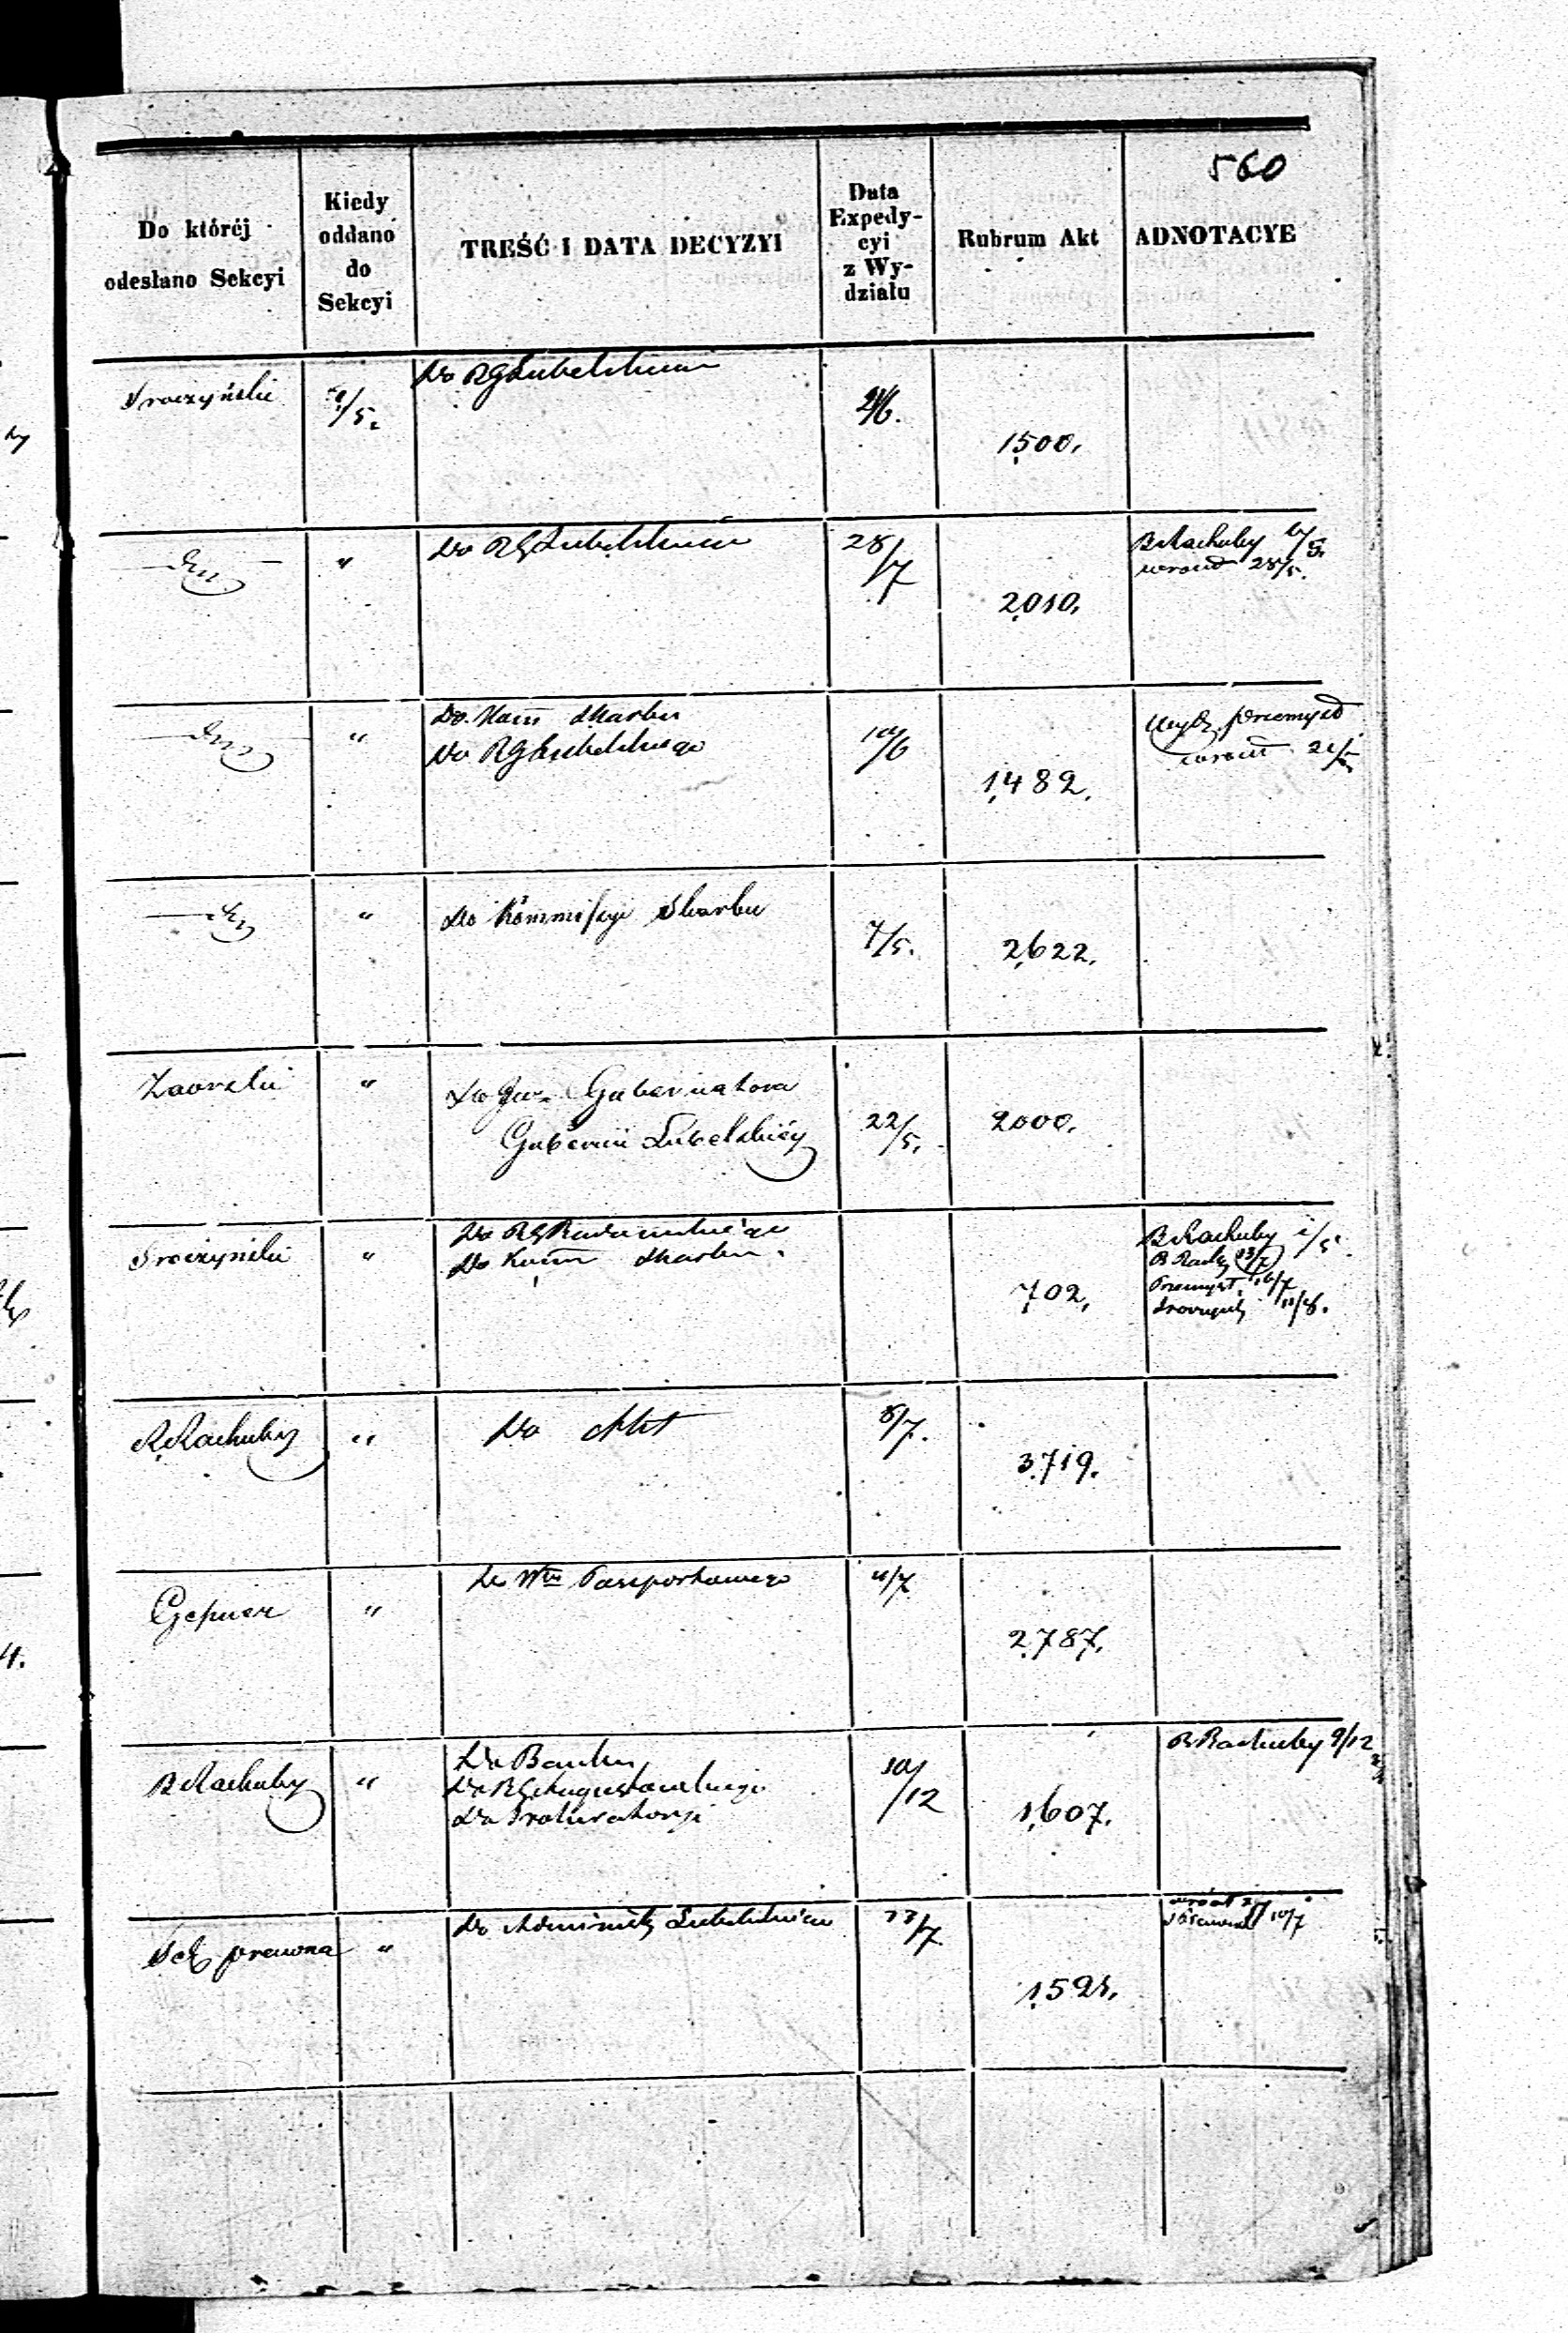 560
Do któréj odesłano Sekcyi
Kiedy oddano do Sekcyi
TREŚĆ I DATA DECYZYI
Data Expedycyi z Wydziału
Rubrum Akt
ADNOTACYE
Sroczyński /5. Do RGLubelskiego 1500.
" Do RGLubelskiego 28/7 2010. B Rachuby
wrócił 28/5.
" Do Kom Skarbu
Do RGLubelskiego 1482. Wydz. przemysł
wrócił
" Do Kommissyi Skarbu 7/5. 2622.
Zaorski " Do Gubernatora
Gubernii Lubelskiéj 22/5. 2000.
Sroczyński " Do RGRadomskiego
Do Komm Skarbu. 702. B Rachuby
B Rach 23/7
Przemysł. 16/7
Sroczyński
B. Rachuby " Do Akt 8/7. 3719.
Gepner " Do Paszportowego 11/7 2787.
B Rachuby " Do Banku
Do RGAugustowskiego
Do Prokuratoryi 10/12 1607. B Rachuby 9/12
Sek prawna " Do Lubelskiego 13/7 1525.
10/7